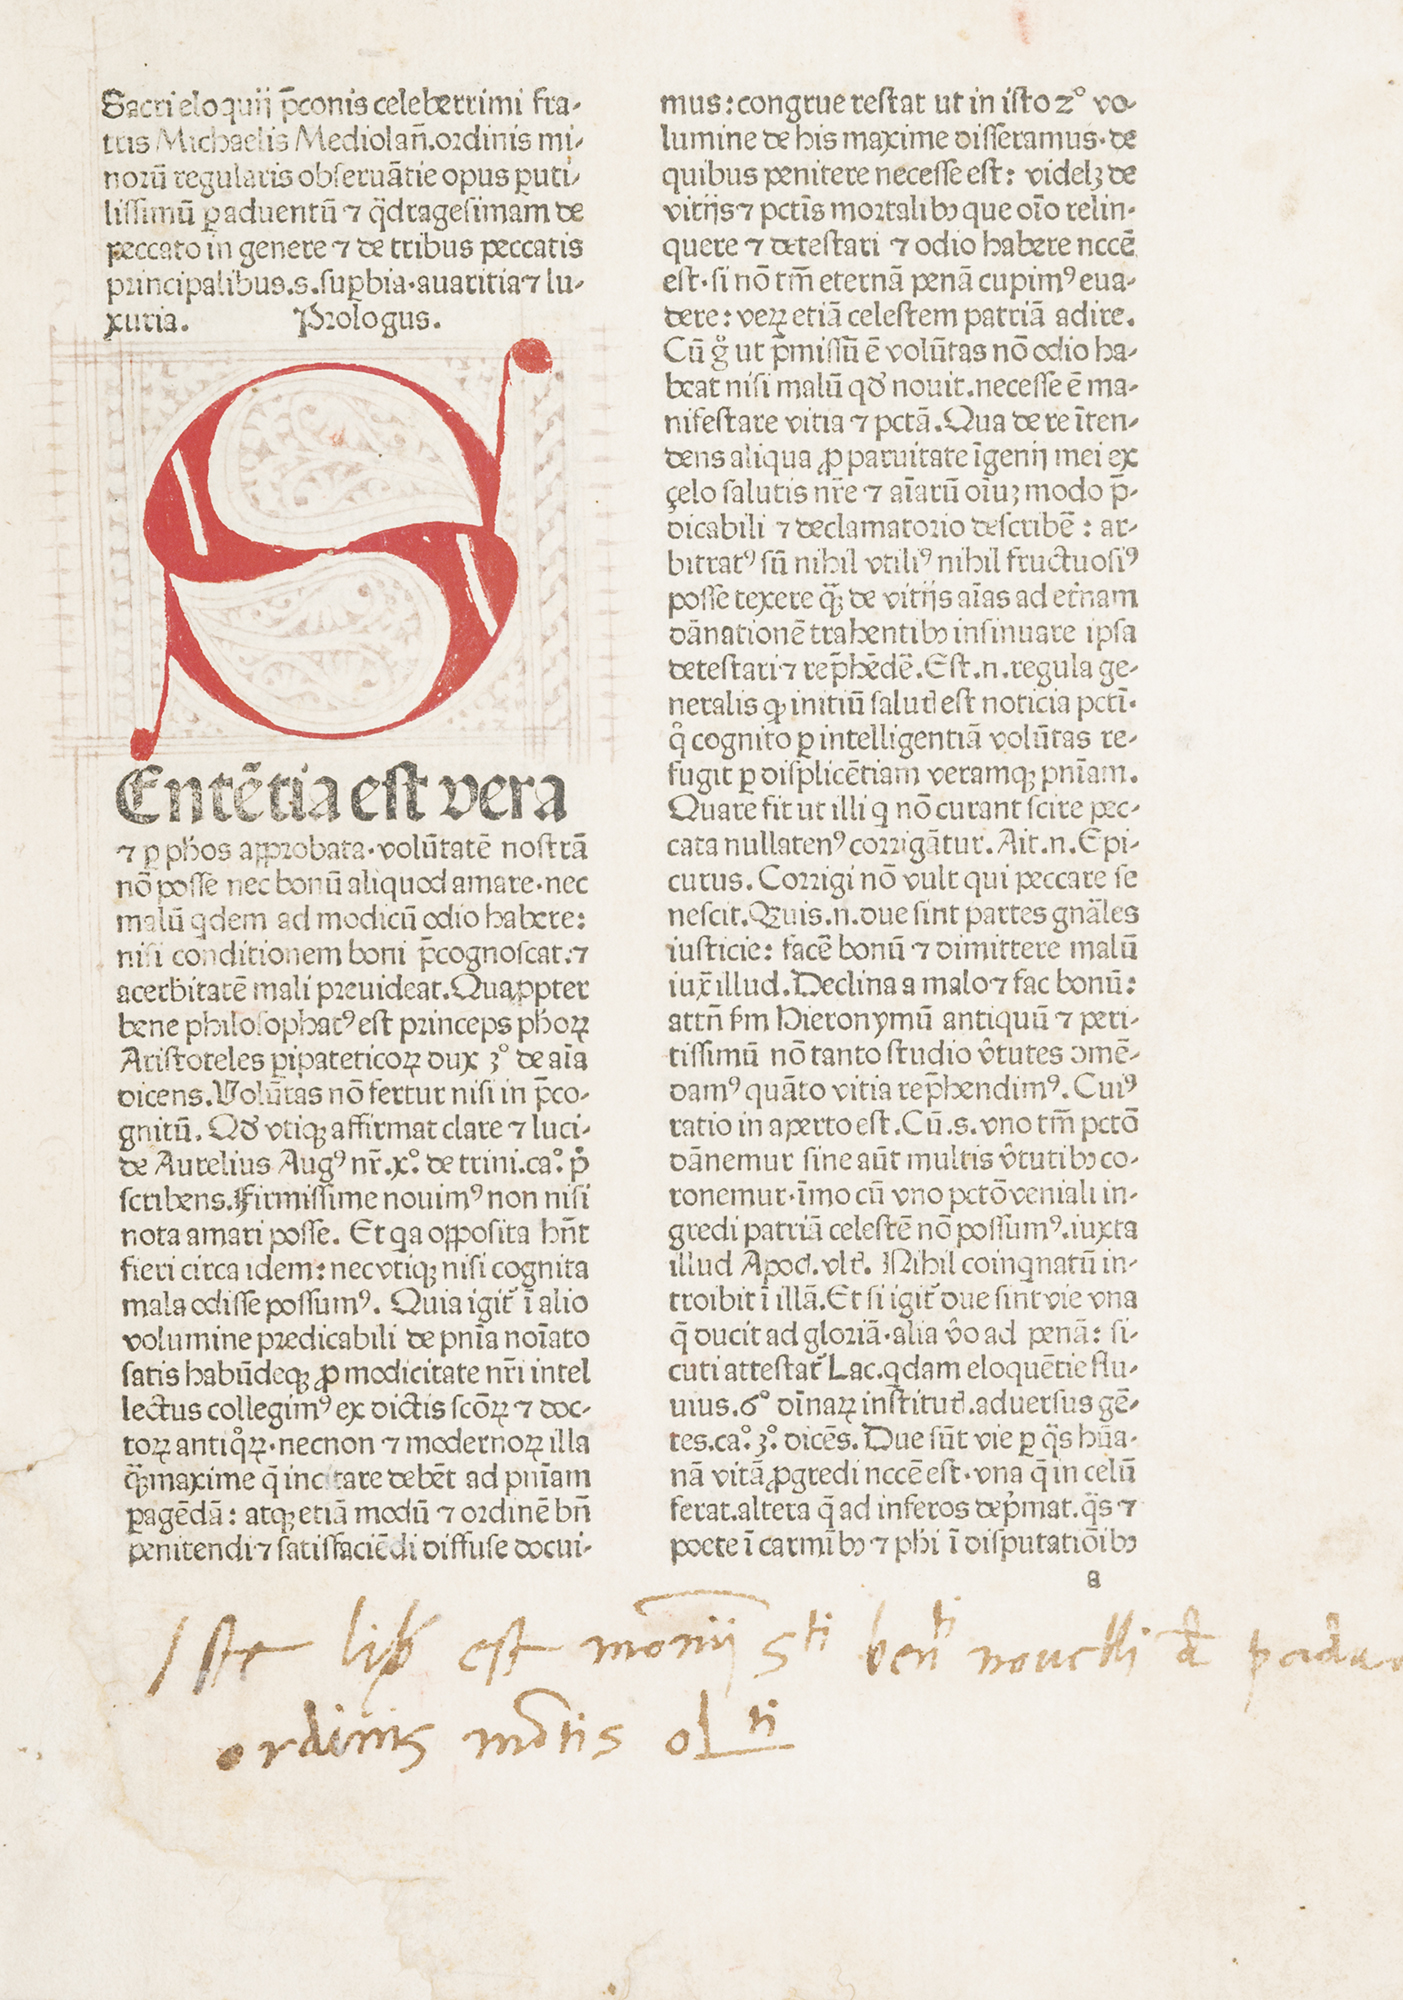 Sacri eloquij p̄conis celeberrimi fra-
tris Michaelis Mediolan̄.ordinis mi-
norū regularis obseruātie opus ꝑuti-
lissimū ꝑ aduentū ⁊ q̄dragesimam de
peccato in genere ⁊ de tribus peccatis
principalibus.s.suꝑbia.auaritia ⁊ lu-
xuria. Prologus.
S
Entētia est vera
⁊ ꝑ ph̄os approbata.volūtatē nostrā
nō posse nec bonū aliquod amare.nec
malū qdem ad modicū odio habere:
nisi conditionem boni p̄cognoscat.⁊
acerbitatē mali preuideat.Quaꝓpter
bene philosophatꝰ est princeps ph̄oꝝ
Aristoteles ꝑipateticoꝝ dux 3º de aīa
dicens.Volūtas nō fertur nisi in p̄co-
gnitū. Qđ vtiqꝫ affirmat clare ⁊ luci-
de Aurelius Augꝰ nr̄.xº.de trini.caº.
scribens.Firmissime nouimꝰ non nisi
nota amari posse. Et qa opposita hn̄t
fieri circa idem: nec vtiqꝫ nisi cognita
mala odisse possumꝰ. Quia igit᷑ ī alio
volumine predicabili de pnīa noīato
satis habūdeqꝫ ꝓ modicitate nr̄i intel
lectus collegimꝰ ex dictis scōꝝ ⁊ doc-
toꝝ antiqͦꝝ.necnon ⁊ modernoꝝ illa
q̄ꝫ maxime q̄ incitare debēt ad pnīam
ꝑagēdā: atqꝫ etiā modū ⁊ ordinē bn̄
penitendi ⁊ satisfaciēdi diffuse docui-
mus: congrue restat ut in isto 2º vo-
lumine de his maxime disseramus.de
quibus penitere necesse est: videlꝫ de
vitijs ⁊ pctīs mortalibꝰ que oīo relin-
quere ⁊ detestari ⁊ odio habere nccē
est.si nō tm̄ eternā penā cupimꝰ eua-
dere: veꝝ etiā celestem patriā adire.
Cū gͦ ut p̄missū ē volūtas nō odio ha-
beat nisi malū qđ nouit.necesse ē ma-
nifestare vitia ⁊ pctā.Qua de re īten-
dens aliqua ꝓ paruitate īgenij mei ex
çelo salutis nr̄e ⁊ aīarū oīuꝫ modo p̄-
dicabili ⁊ declamatorio describē: ar-
bitratꝰ sū nihil vtiliꝰ nihil fructuosiꝰ
posse texere q̄ꝫ de vitijs aīas ad et̄nam
dānationē trahentibꝰ insinuare ipsa
detestari ⁊ rep̄hēdē.Est.n.regula ge-
neralis qꝫ initiū salut᷑ est noticia pctī.
qͦ cognito ꝑ intelligentiā volūtas re-
fugit ꝑ displicētiam veramqꝫ pnīam.
Quare fit ut illi q nō curant scire pec-
cata nullatenꝰ corrigātur.Ait.n.Epi-
curus.Corrigi nō vult qui peccare se
nescit.Quis.n.due sint partes gnāles
iusticie: facē bonū ⁊ dimittere malū
iux̄ illud.Declina a malo ⁊ fac bonū:
attn̄ ẜm Hieronymū antiquū ⁊ peri-
tissimū nō tanto studio v̄tutes ꝯmē-
damꝰ quāto vitia rep̄hendimꝰ.Cuiꝰ
ratio in aperto est.Cū.s.vno tm̄ pctō
dānemur sine aūt multis v̄tutibꝰ co-
ronemur.īmo cū vno pctō veniali in-
gredi patriā celestē nō possumꝰ.iuxta
illud Apoc᷑.vlt᷑. Nihil coinqnatū in-
troibit ī illā.Et si igit᷑ due sint vie vna
q̄ ducit ad gloriā.alia v̄o ad penā: si-
cuti attestat᷑ Lac.qdam eloquētie flu-
uius.6º diīnaꝝ institut᷑.aduersus gē-
tes.caº.3º.dicēs.Due sūt vie ꝑ q̄s hūa-
nā vitā ꝓgredi nccē est.vna q̄ in celū
ferat.altera q̄ ad inferos dep̄mat.q̄s ⁊
poete ī carmībꝰ ⁊ ph̄i ī disputatiōibꝰ
a
Iste lib̄ est mōnij sti ben̄ti nouelli d̄ padua
ordinis mōtis olti